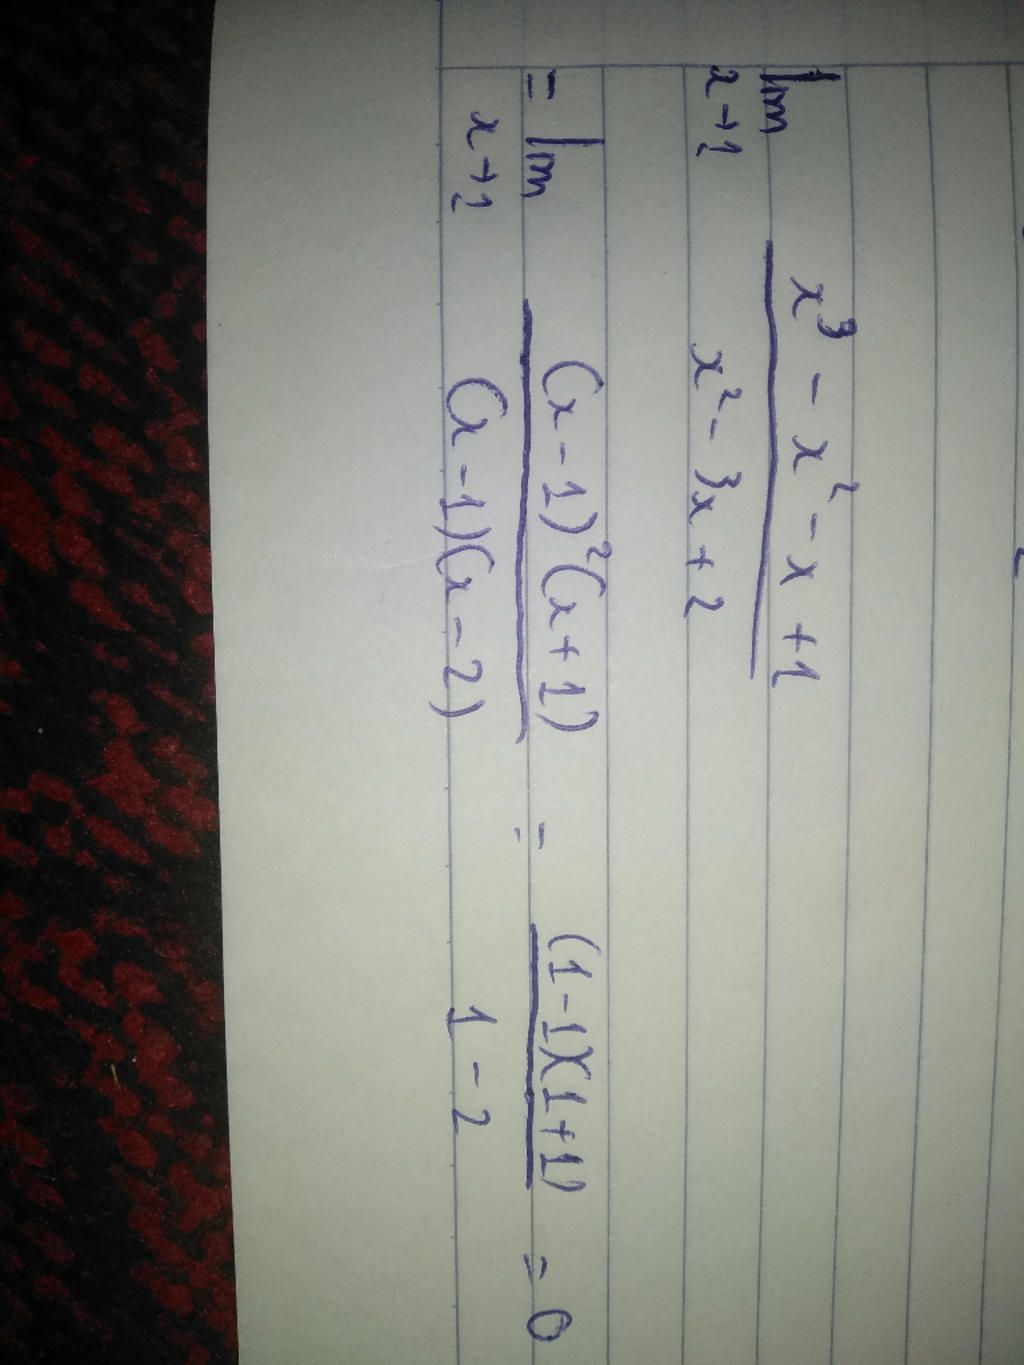 lim x→1 (x³ - x² - x + 1) / (x² - 3x + 2)
= lim x→1 ((x - 1)²(x + 1)) / ((x - 1)(x - 2)) = ((1 - 1)(1 + 1)) / (1 - 2) = 0